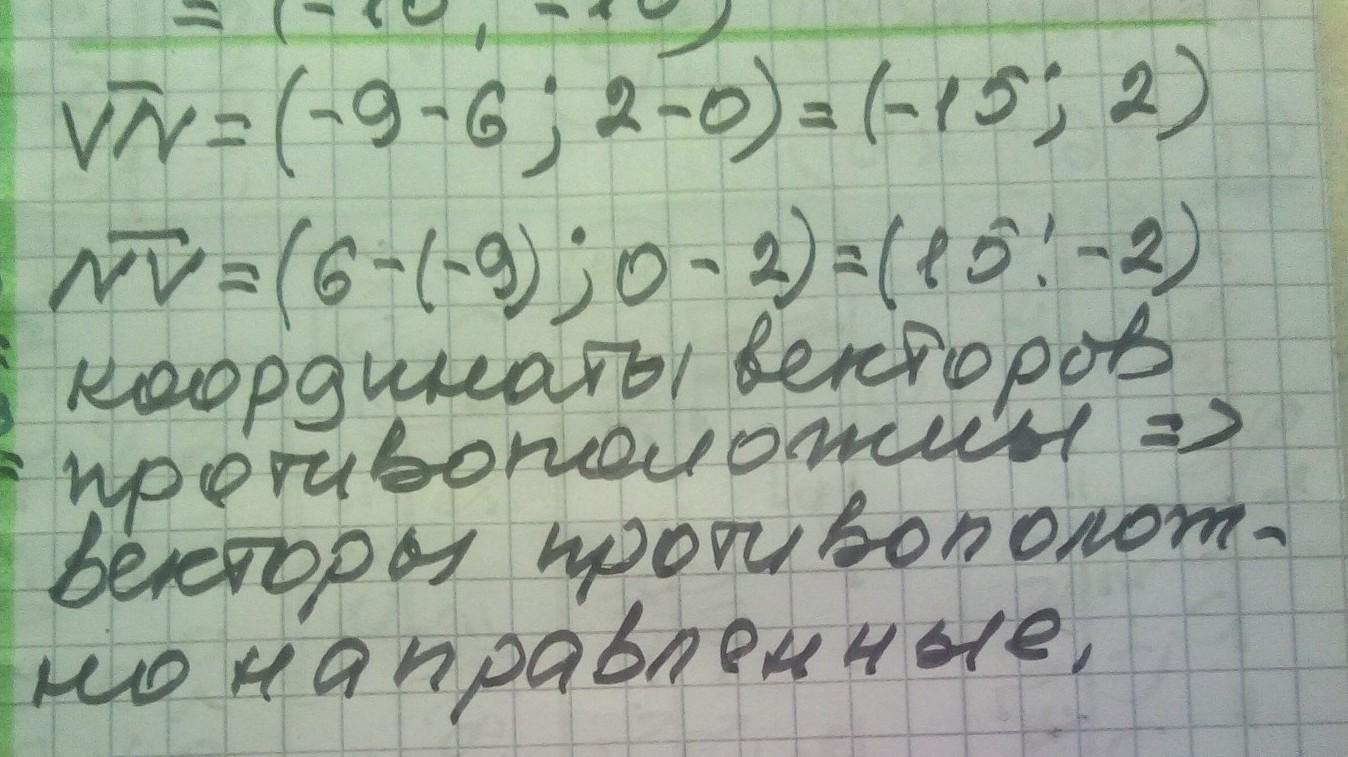 = (-10; -10)
V̅N̅ = (-9-6; 2-0) = (-15; 2)
N̅V̅ = (6-(-9); 0-2) = (15; -2)
координаты векторов
противоположны =>
векторы противополож-
но направленные.